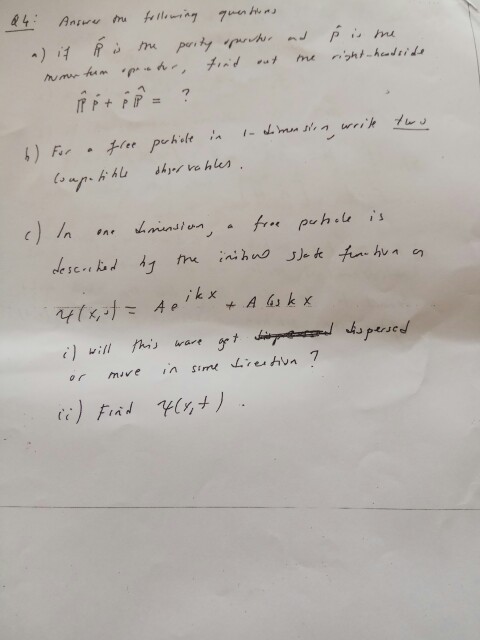 Q4: Answer the following questions
a) if R̂ is the parity operator and p̂ is the
momentum operator, find out the right-hand side
R̂ p̂ + p̂ R̂ = ?
b) For a free particle in 1-dimension, write two
compatible observables.
c) In one dimension, a free particle is
described by the initial state function as
ψ(x,0) = A e^{ikx} + A Cos k x
i) will this wave get dispersed
or move in some direction?
ii) Find ψ(x,t).